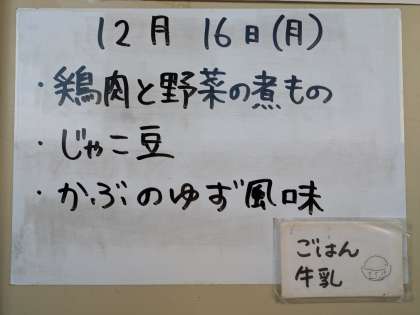 12月 16日(月)
・鶏肉と野菜の煮もの
・じゃこ豆
・かぶのゆず風味
ごはん
牛乳